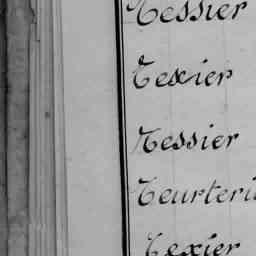 Tessier
Texier
Tessier
Teurteri
Texier